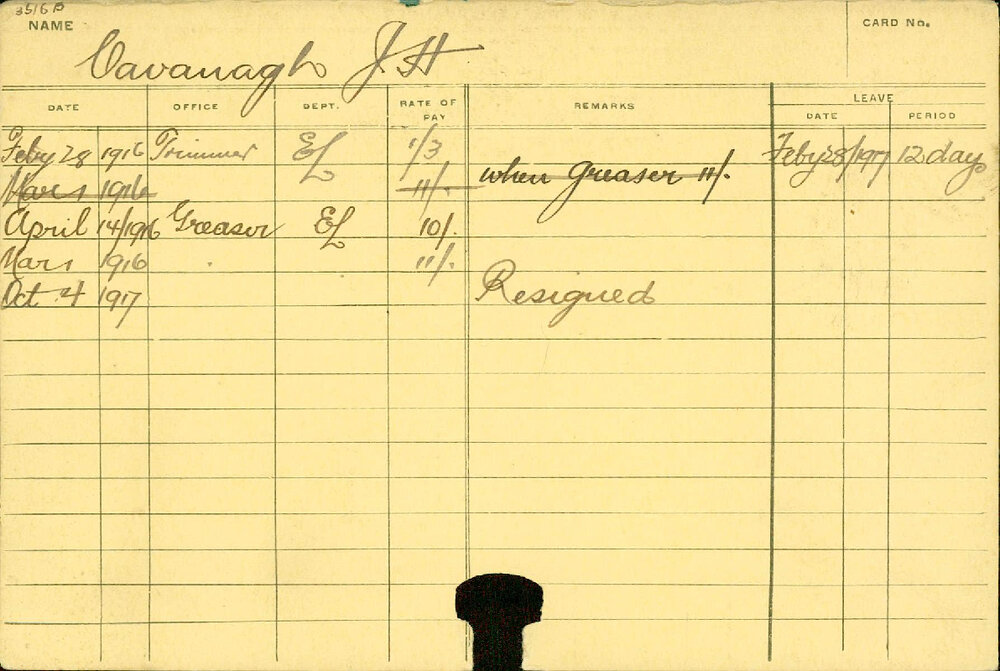 3516 P
NAME
CARD No.
Cavanagh J H
DATE OFFICE DEPT. RATE OF PAY REMARKS LEAVE
DATE PERIOD
Feby 28 1916 Trimmer EL 1/3 Feby 28/1917 12 days
Mars 1916 11/. when Greaser 11/.
April 14/1916 Greaser EL 10/.
Mars 1916 11/.
Oct 4 1917 Resigned